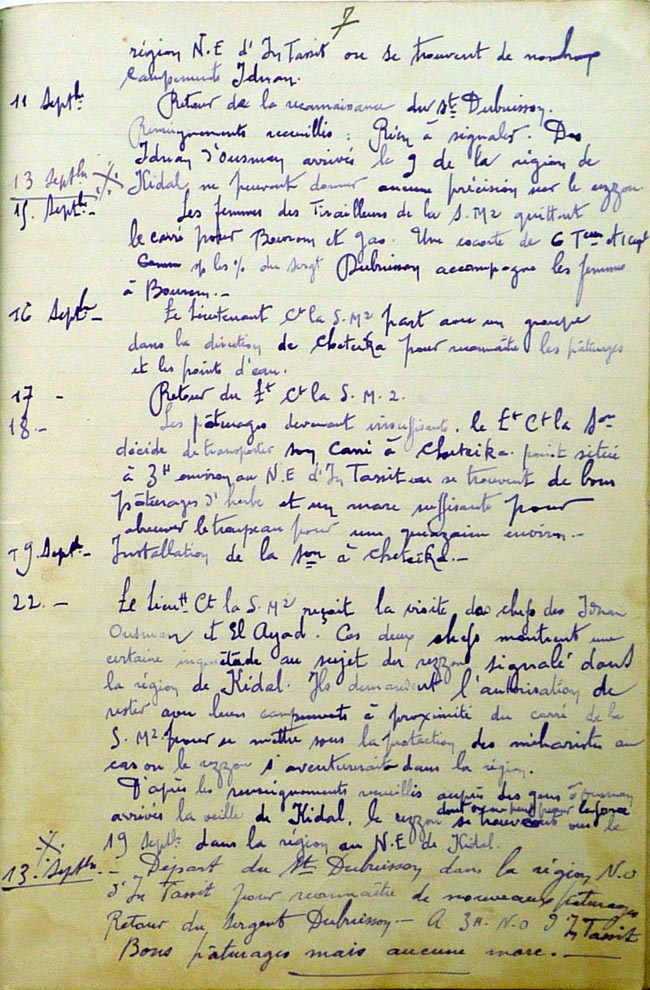 7
région N.E d'In Tassit ou se trouvent de nombreux
campements Idnan.
11 Septbre Retour de la reconnaissance du St Dubuisson.
Renseignements recueillis : Rien à signaler. Des
Idnan d'Ousman arrivés le 9 de la région de
13 Septbre Kidal ne peuvent donner aucune précision sur le rezzou
15. Septbre - Les femmes des Tirailleurs de la S.M2 quittent
le carré pour Bourem et gao. Une escorte de 6 Teurs et 1 capl
s/s les % du sergt Dubuisson accompagne les femmes
à Bourem. -
16 Septbre - Le Lieutenant Ct la S.M2 part avec un groupe
dans la direction de Cheteika pour reconnaître les pâturages
et les points d'eau.
17 - Retour du Lt Ct la S.M.2.
18. - Les pâturages devenant insuffisants, le Lt Ct la Son
décide de transporter son carré à Cheteika point situé
à 3H environ au N.E d'In Tassit ou se trouvent de bons
pâturages d'herbe et un mare suffisante pour
abreuver le troupeau pour une quinzaine environ. -
19 Septbre - Installation de la Son à Cheteika. -
22. - Le Lieutt Ct la S.M2 reçoit la visite des chefs des Idnan
Ousman et El Ayad. Ces deux chefs montrent une
certaine inquiétude au sujet du rezzou signalé dans
la région de Kidal. Ils demandent l'autorisation de
rester avec leurs campements à proximité du carré de la
S.M2 pour se mettre sous la protection des méharistes au
cas ou le rezzou s'aventurerait dans la région.
D'après les renseignements recueillis auprès des gens d'Ousman
arrivés la veille de Kidal, le rezzou dont on ne peut la force
se trouvait le
19 Septbre dans la région au N.E de Kidal.
13. Septbre. - Départ du St Dubuisson dans la région N.O
d'In Tassit pour reconnaître de nouveaux pâturages
Retour du Sergent Dubuisson - A 3H. N.O d'In Tassit
Bons pâturages mais aucune mare. -